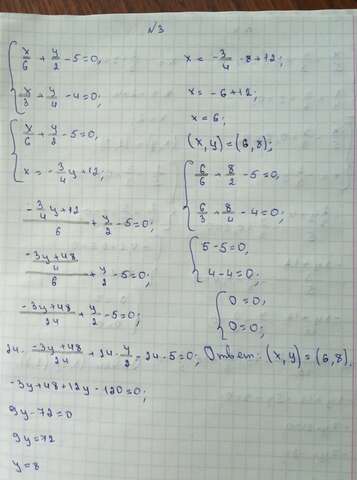 №3
x/6 + y/2 - 5 = 0,
x/3 + y/4 - 4 = 0;
x/6 + y/2 - 5 = 0,
x = -3/4 y + 12;
(-3/4 y + 12)/6 + y/2 - 5 = 0;
((-3y + 48)/4)/6 + y/2 - 5 = 0;
(-3y + 48)/24 + y/2 - 5 = 0;
24 · (-3y + 48)/24 + 24 · y/2 - 24 · 5 = 0;
-3y + 48 + 12y - 120 = 0;
9y - 72 = 0
9y = 72
y = 8
x = -3/4 · 8 + 12;
x = -6 + 12;
x = 6;
(x, y) = (6, 8);
6/6 + 8/2 - 5 = 0,
6/3 + 8/4 - 4 = 0;
5 - 5 = 0,
4 - 4 = 0;
0 = 0,
0 = 0;
Ответ: (x, y) = (6, 8).